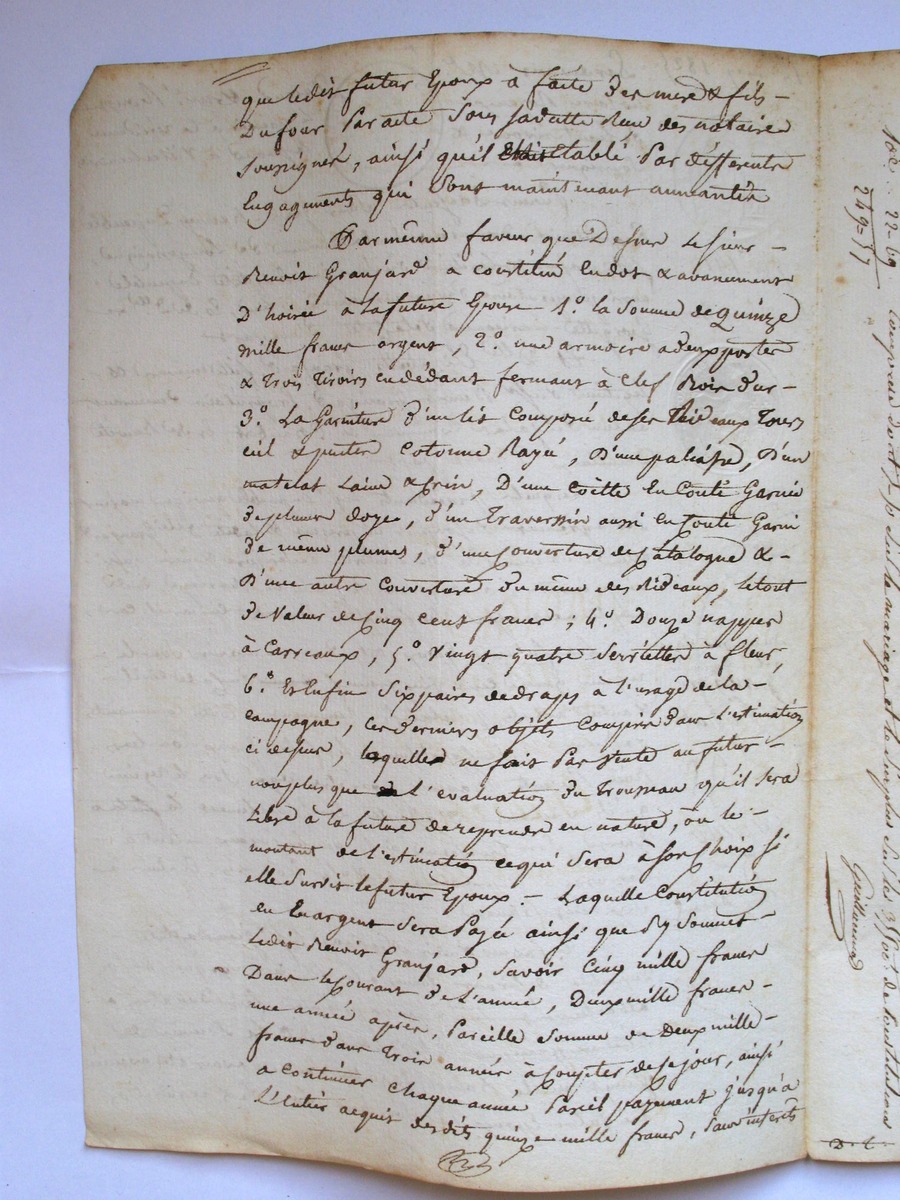 que ledit futur Epoux à faite des mere & fils -
Dufour Par acte sous sa datte Reçu des notaire
soussignés, ainsi qu'il Etablé Par differents
Engagements qui sont maintenant anneantis
Par même faveur que Dessus Le sieur -
Benoit Granjard a constitué En dot & avancement
D'hoirie à la future Epouse 1.° la somme de Quinze
mille francs argent, 2.° une armoire a deux portes
& Trois Tiroirs en dédant fermant à Clef Bois dur -
3.° La Garniture d'un lit composé de ses Rideaux Tours
Ciel & pentes cotonne Rayé, D'une paliasse, D'un
matelat Laine & Crin, D'une Coëtte En Couté Garnie
de plume doye, d'un Traversin aussi En Couté Garni
de même plumes, d'une Couverture de Catalogne & -
D'une autre Couverture du même des Rideaux, Le tout
de Valeur de Cinq cent francs ; 4.° Douze nappes
à Carreaux, 5.° Vingt quatre Serviettes à fleur,
6.° Et Enfin six paires de draps à l'usage de la -
campagne, Ces derniers objets Compris dans L'estimation
ci dessus, laquelle ne fait Pas Vente au futur -
non plus que L'evaluation du Trousseau qu'il sera
Libre à la future de reprendre en nature, ou le -
montant de L'estimation ce qui sera à son Choix si
elle survit le futur Epoux. - Laquelle Constitution
en En argent sera Payé ainsi que s'y soumet -
Ledit Benoit Granjard, savoir Cinq mille francs
Dans le Courant de L'année, Deux mille francs -
une année après, Pareille somme de Deux mille -
francs dans Trois années à compter de ce jour, ainsi
a continuer chaque année Pareil payement jusqu'à
L'Entier acquit desdits quinze mille francs, sans interets
22-69
249=57
le mariage et le surplus sur les
de Constitution
Guillermond